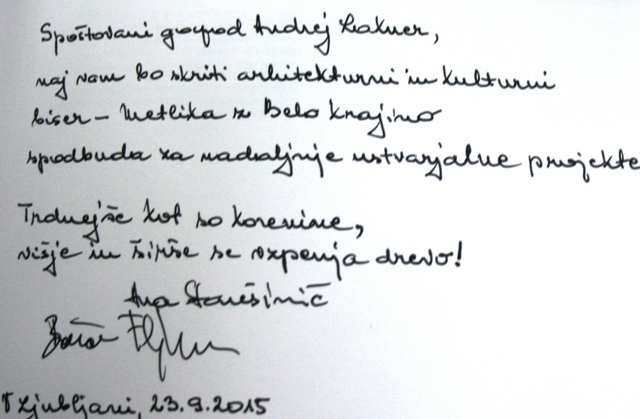 Spoštovani gospod Andrej Lokner,
naj vam bo skriti arhitekturni in kulturni
biser – Metlika z Belo krajino
spodbuda za nadaljnje ustvarjalne projekte
Trdnejše kot so korenine,
višje in širše se razpenja drevo!
Ana Starešinič
V Ljubljani, 23.9.2015